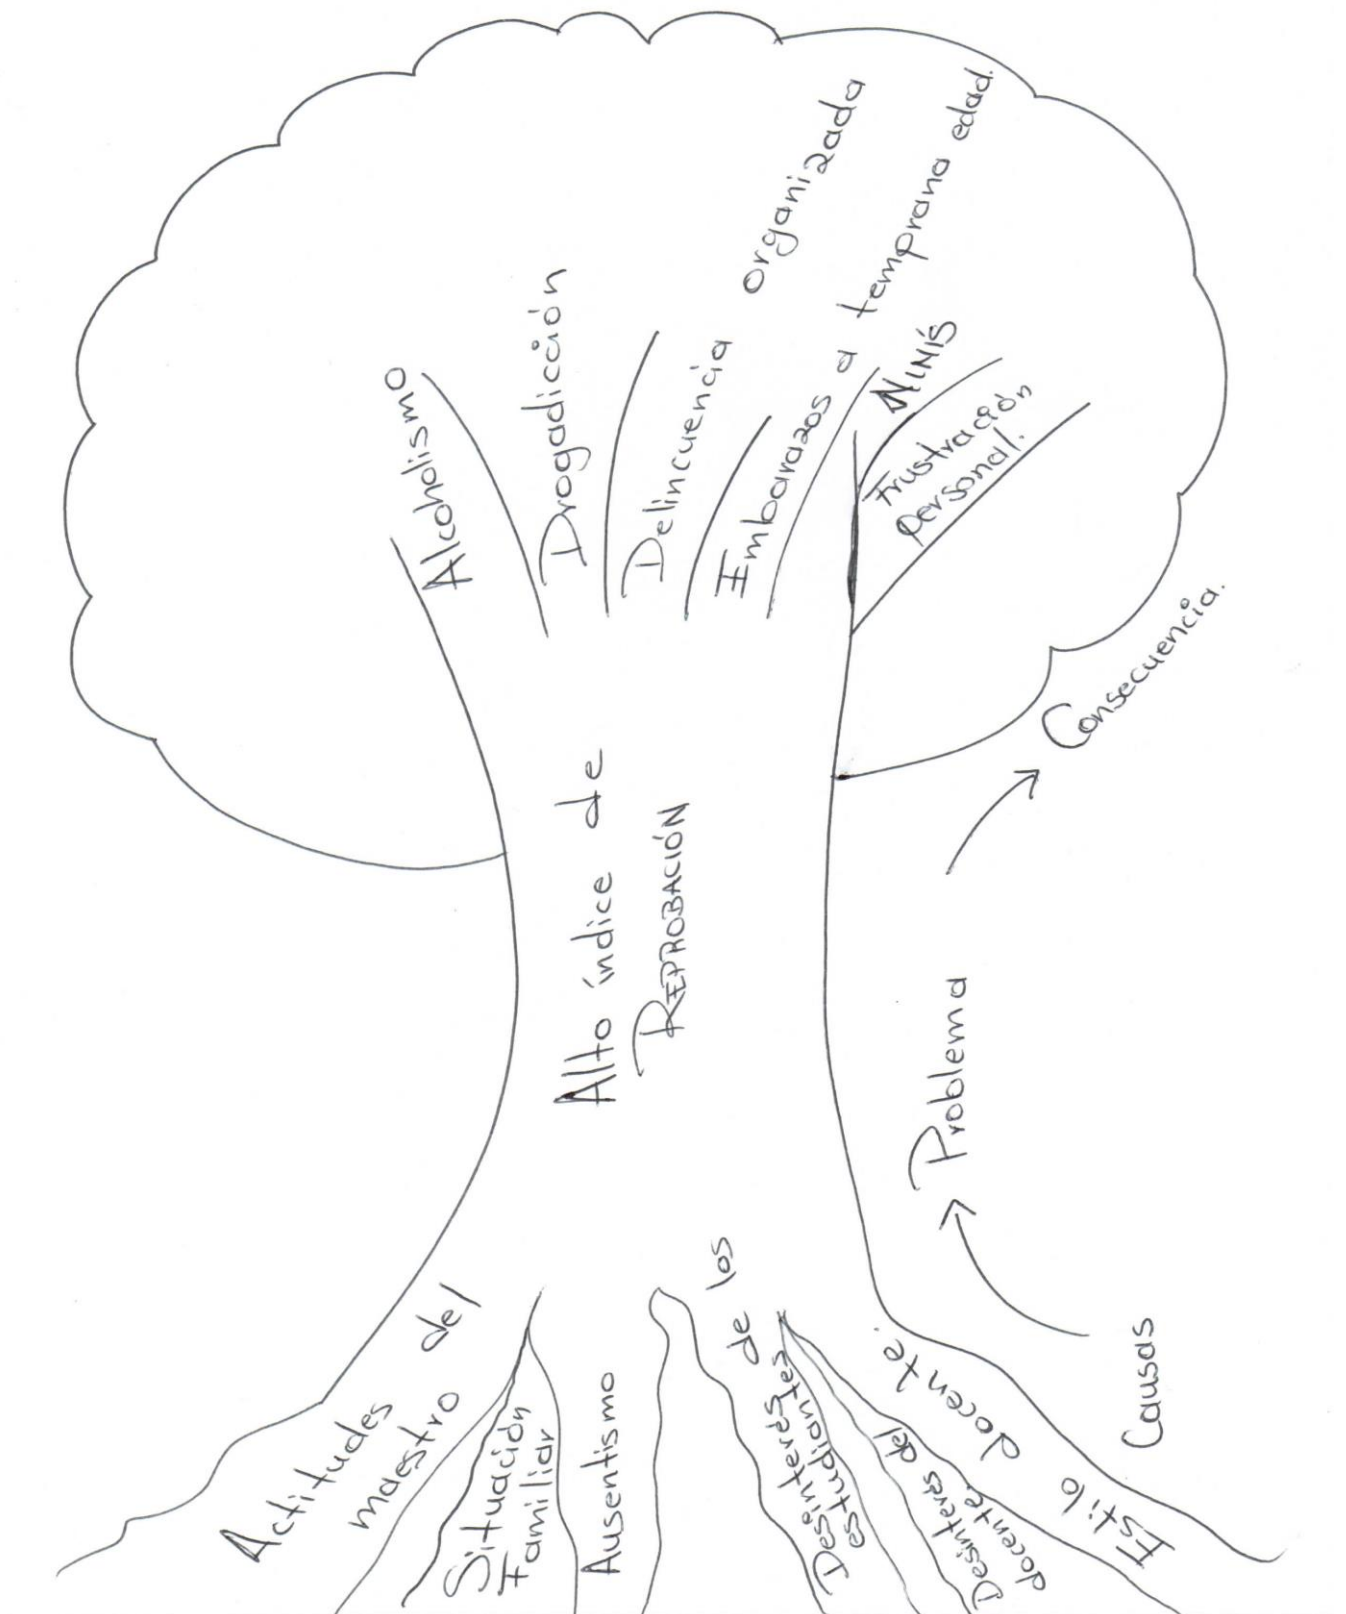 Alcoholismo
Drogadicción
Delincuencia organizada
Embarazos a temprana edad.
NINIS
Frustración
personal.
Alto índice de
REPROBACIÓN
Consecuencia.
Problema
Causas
Actitudes del
maestro
Situación
Familiar
Ausentismo
Desinterés de los
estudiantes
Desinterés del
docente.
Estilo docente.